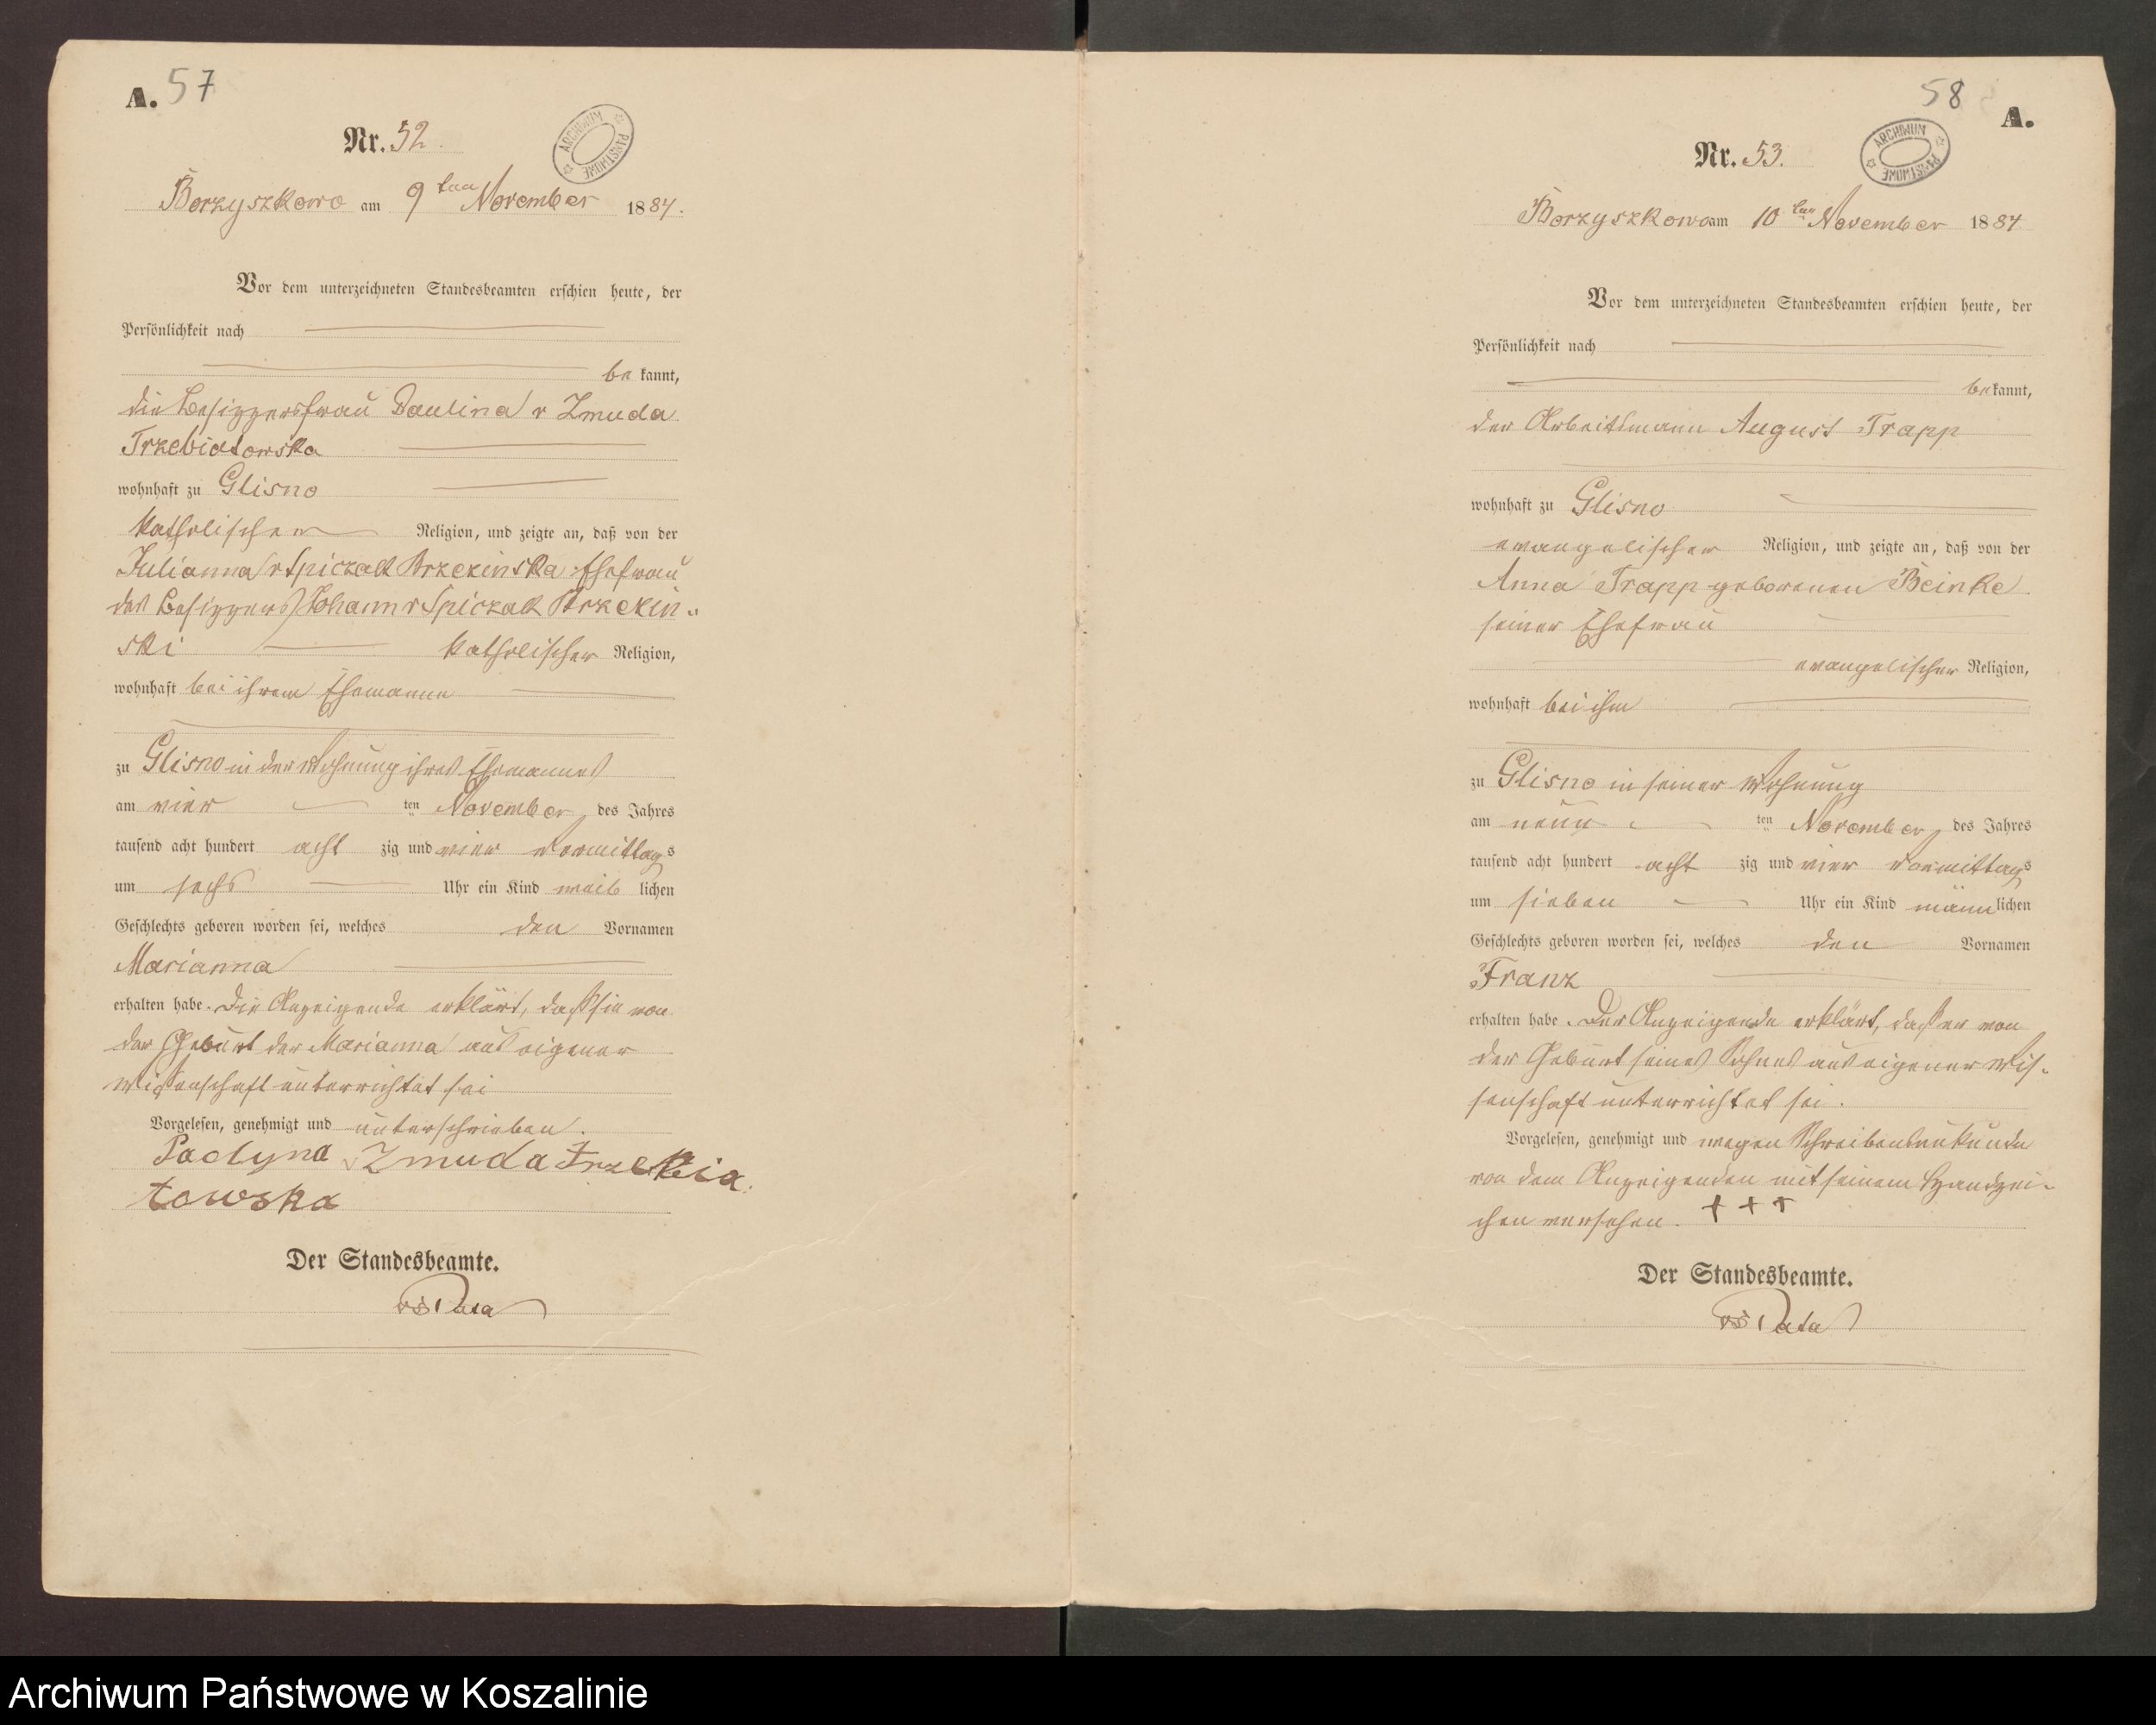 A. 57
Nr. 52.
ARCHIWUM PAŃSTWOWE
Borzyszkowo am 9ten November 1884.
Vor dem unterzeichneten Standesbeamten erschien heute, der
Persönlichkeit nach
bekannt,
die Besitzersfrau Paulina v Zmuda
Trzebiatowska
wohnhaft zu Glisno
katholischer Religion, und zeigte an, daß von der
Julianna v Spiczak Brzezinska Ehefrau
des Besitzers Johann v Spiczak Brzezin-
ski katholischer Religion,
wohnhaft bei ihrem Ehemanne
zu Glisno in der Wohnung ihres Ehemannes
am vier ten November des Jahres
tausend acht hundert acht zig und vier Vormittags
um sechs Uhr ein Kind weiblichen
Geschlechts geboren worden sei, welches den Vornamen
Marianna
erhalten habe. Die Anzeigende erklärt, daß sie von
der Geburt der Marianna aus eigener
Wissenschaft unterrichtet sei
Vorgelesen, genehmigt und unterschrieben.
Paolyna v Zmuda Trzebia
towska
Der Standesbeamte.
58 A.
Nr. 53.
ARCHIWUM PAŃSTWOWE
Borzyszkowo am 10ten November 1884
Vor dem unterzeichneten Standesbeamten erschien heute, der
Persönlichkeit nach
bekannt,
der Arbeitsmann August Trapp
wohnhaft zu Glisno
evangelischer Religion, und zeigte an, daß von der
Anna Trapp geborenen Beinke
seiner Ehefrau
evangelischer Religion,
wohnhaft bei ihm
zu Glisno in seiner Wohnung
am neun ten November des Jahres
tausend acht hundert acht zig und vier Vormittags
um sieben Uhr ein Kind männlichen
Geschlechts geboren worden sei, welches den Vornamen
Franz
erhalten habe. Der Anzeigende erklärt, daß er von
der Geburt seines Sohnes aus eigener Wis-
senschaft unterrichtet sei.
Vorgelesen, genehmigt und wegen Schreibensunkunde
von dem Anzeigenden mit seinem Handzei-
chen versehen. + + +
Der Standesbeamte.
Archiwum Państwowe w Koszalinie